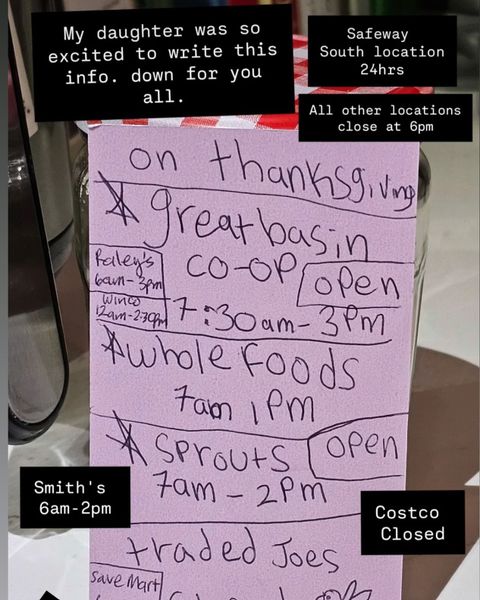 My daughter was so
excited to write this
info. down for you
all.
Safeway
South location
24hrs
All other locations
close at 6pm
on thanksgiving
great basin
co-op
open
Raley's
6am-3pm
Winco
12am-2:30pm
7:30am-3pm
whole foods
7am 1pm
sprouts
open
7am-2pm
Smith's
6am-2pm
Costco
Closed
traded Joes
save Mart